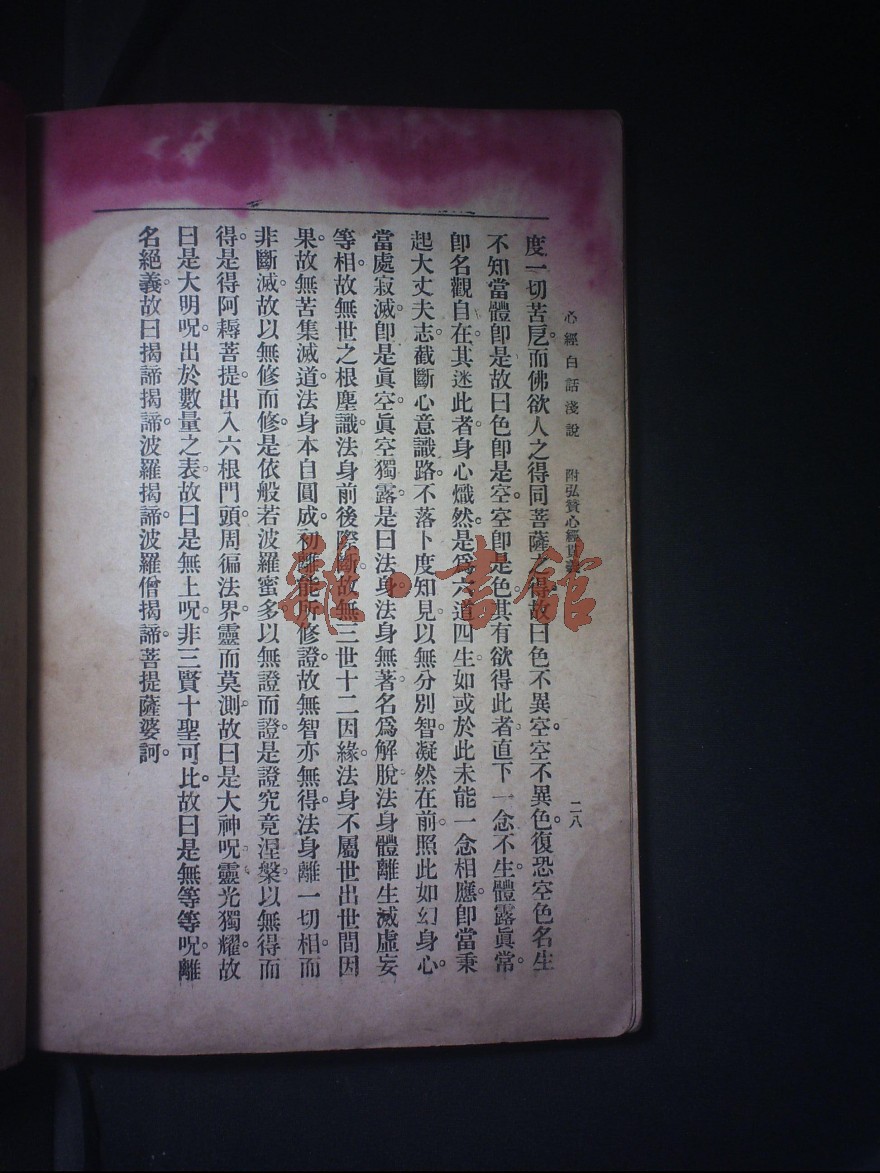 心經白話淺說　附弘贊心經　二八
度一切苦厄。而佛欲人之得同菩薩之得。故曰色不異空。空不異色。復恐空色名生
不知當體卽是。故曰色卽是空。空卽是色。其有欲得此者。直下一念不生。體露眞常。
卽名觀自在。其迷此者。身心熾然。是爲六道四生。如或於此未能一念相應。卽當秉
起大丈夫志。截斷心意識路。不落卜度知見。以無分別智。凝然在前。照此如幻身心。
當處寂滅。卽是眞空。眞空獨露。是曰法身。法身無著。名爲解脫。法身體離生滅虛妄
等相。故無世之根塵識。法身前後際斷。故無三世十二因緣。法身不屬世出世間因
果。故無苦集滅道。法身本自圓成。初離能所修證。故無智亦無得。法身離一切相。而
非斷滅。故以無修而修。是依般若波羅蜜多。以無證而證。是證究竟涅槃。以無得而
得。是得阿耨菩提。出入六根門頭。周徧法界。靈而莫測。故曰是大神呪。靈光獨耀。故
曰是大明呪。出於數量之表。故曰是無上呪。非三賢十聖可比。故曰是無等等呪。離
名絕義。故曰揭諦揭諦。波羅揭諦。波羅僧揭諦。菩提薩婆訶。
雜·書館